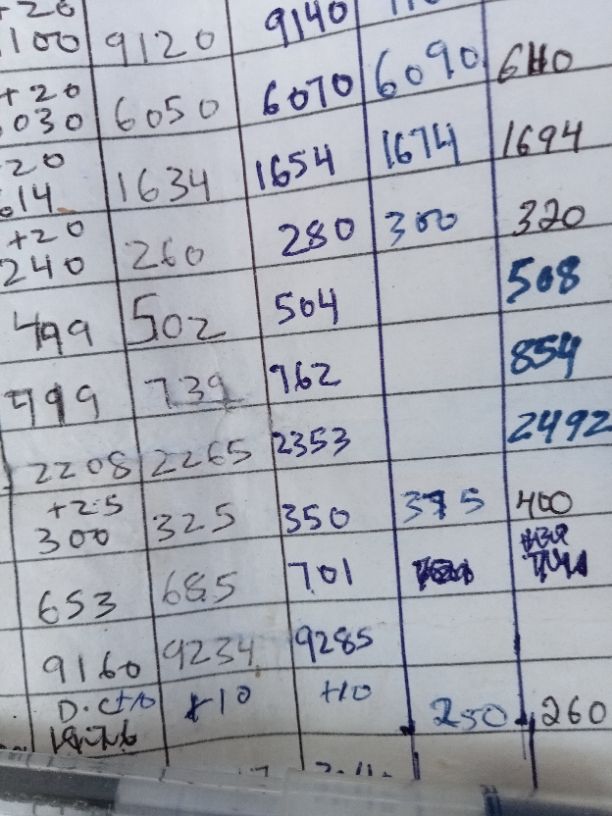 +20 9140
1100 9120
+20 6070 6090 6110
6030 6050
+20 1654 1674 1694
1614 1634
+20 280 300 320
240 260
499 502 504 508
739 762 854
2208 2265 2353 2492
+25 350 375 400
300 325
653 685 701
9160 9234 9285
+10 +10 250 260